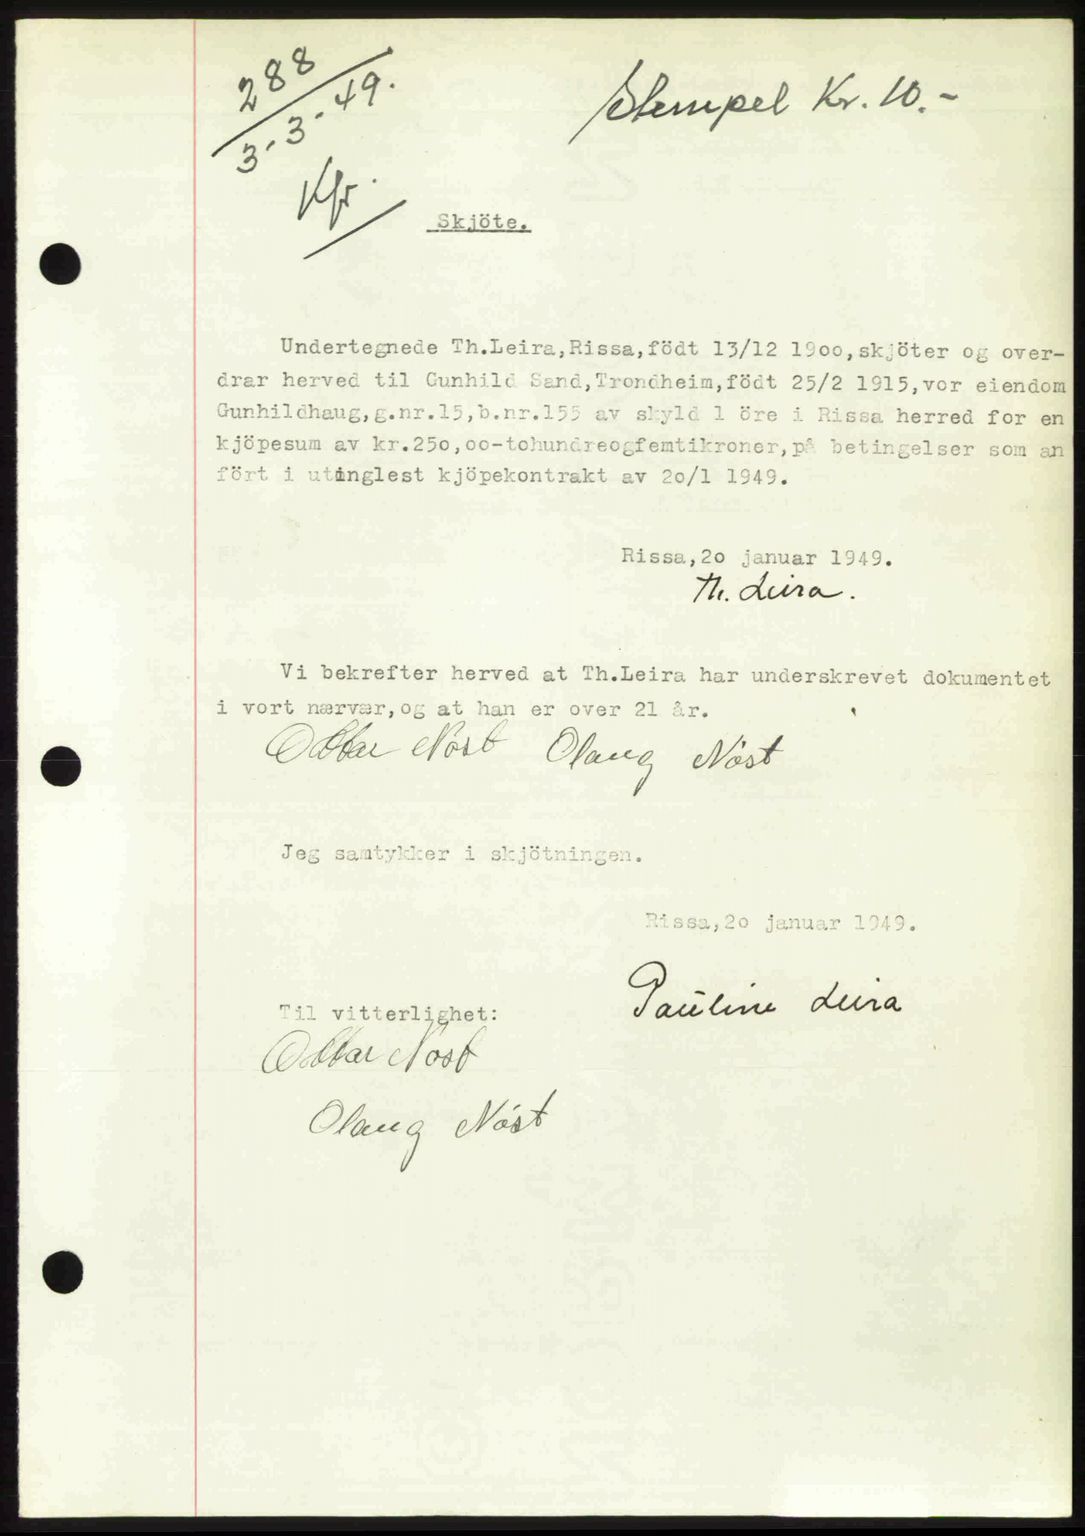 288
3-3-49.
Stempel Kr. 10.-
Kfr.
Skjöte.
Undertegnede Th.Leira,Rissa,födt 13/12 19oo,skjöter og over-
drar herved til Gunhild Sand,Trondheim,födt 25/2 1915,vor eiendom
Gunhildhaug,g.nr.15,b.nr.155 av skyld 1 öre i Rissa herred for en
kjöpesum av kr.25o,oo-tohundreogfemtikroner,på betingelser som an
fört i utinglest kjöpekontrakt av 2o/1 1949.
Rissa,2o januar 1949.
Th. Leira.
Vi bekrefter herved at Th.Leira har underskrevet dokumentet
i vort nærvær,og at han er over 21 år.
Ottar Nöst Olaug Nöst
Jeg samtykker i skjötningen.
Rissa,2o januar 1949.
Pauline Leira
Til vitterlighet:
Ottar Nöst
Olaug Nöst